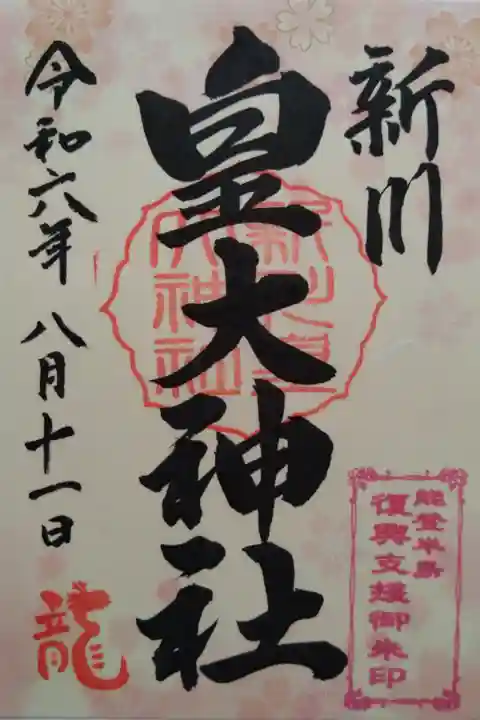 新川
皇大神社
令和六年八月十一日
新川皇
大神社
能登半島
復興支援御朱印
龍